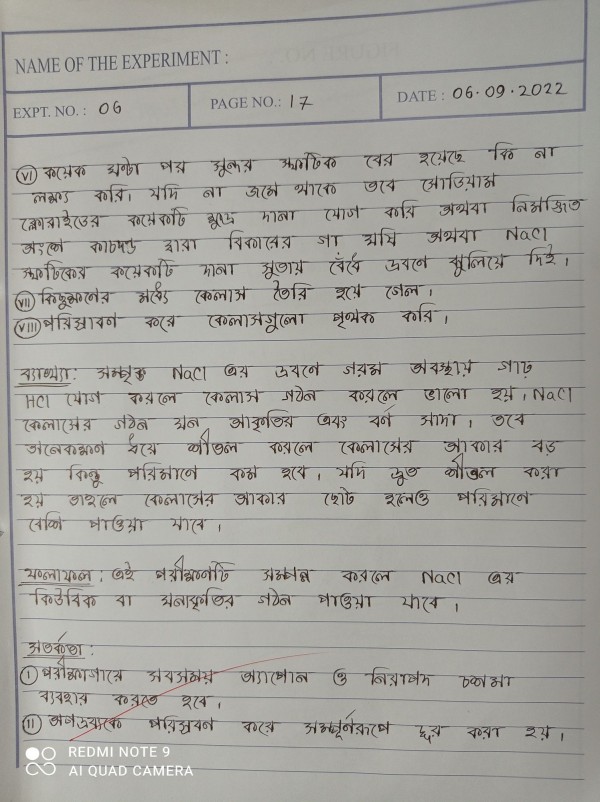 NAME OF THE EXPERIMENT :
EXPT. NO. : 06 PAGE NO.: 17 DATE : 06.09.2022
(VI) কয়েক ঘন্টা পর সুন্দর স্ফটিক বের হয়েছে কি না
লক্ষ্য করি। যদি না জমে থাকে তবে সোডিয়াম
ক্লোরাইডের কয়েকটি ক্ষুদ্র দানা যোগ করি অথবা নিমজ্জিত
অংশে কাচদন্ড দ্বারা বিকারের গা ঘষি অথবা NaCl
স্ফটিকের কয়েকটি দানা সুতায় বেঁধে দ্রবণে ঝুলিয়ে দিই।
(VII) কিছুক্ষণের মধ্যে কেলাস তৈরি হয়ে গেল।
(VIII) পরিস্রাবণ করে কেলাসগুলো পৃথক করি।
ব্যাখ্যা: সম্পৃক্ত NaCl এর দ্রবণে গরম অবস্থায় গাঢ়
HCl যোগ করলে কেলাস গঠন করলে ভালো হয়। NaCl
কেলাসের গঠন ঘন আকৃতির এবং বর্ণ সাদা। তবে
অনেকক্ষণ ধরে শীতল করলে কেলাসের আকার বড়
হয় কিন্তু পরিমাণে কম হবে। যদি দ্রুত শীতল করা
হয় তাহলে কেলাসের আকার ছোট হলেও পরিমাণে
বেশি পাওয়া যাবে।
ফলাফল: এই পরীক্ষণটি সম্পন্ন করলে NaCl এর
কিউবিক বা ঘনাকৃতির গঠন পাওয়া যাবে।
সতর্কতা:
(I) পরীক্ষাগারে সবসময় অ্যাপ্রোন ও নিরাপদ চশমা
ব্যবহার করতে হবে।
(II) অপদ্রব্যকে পরিস্রবন করে সম্পূর্নরূপে দূর করা হয়।
REDMI NOTE 9
AI QUAD CAMERA